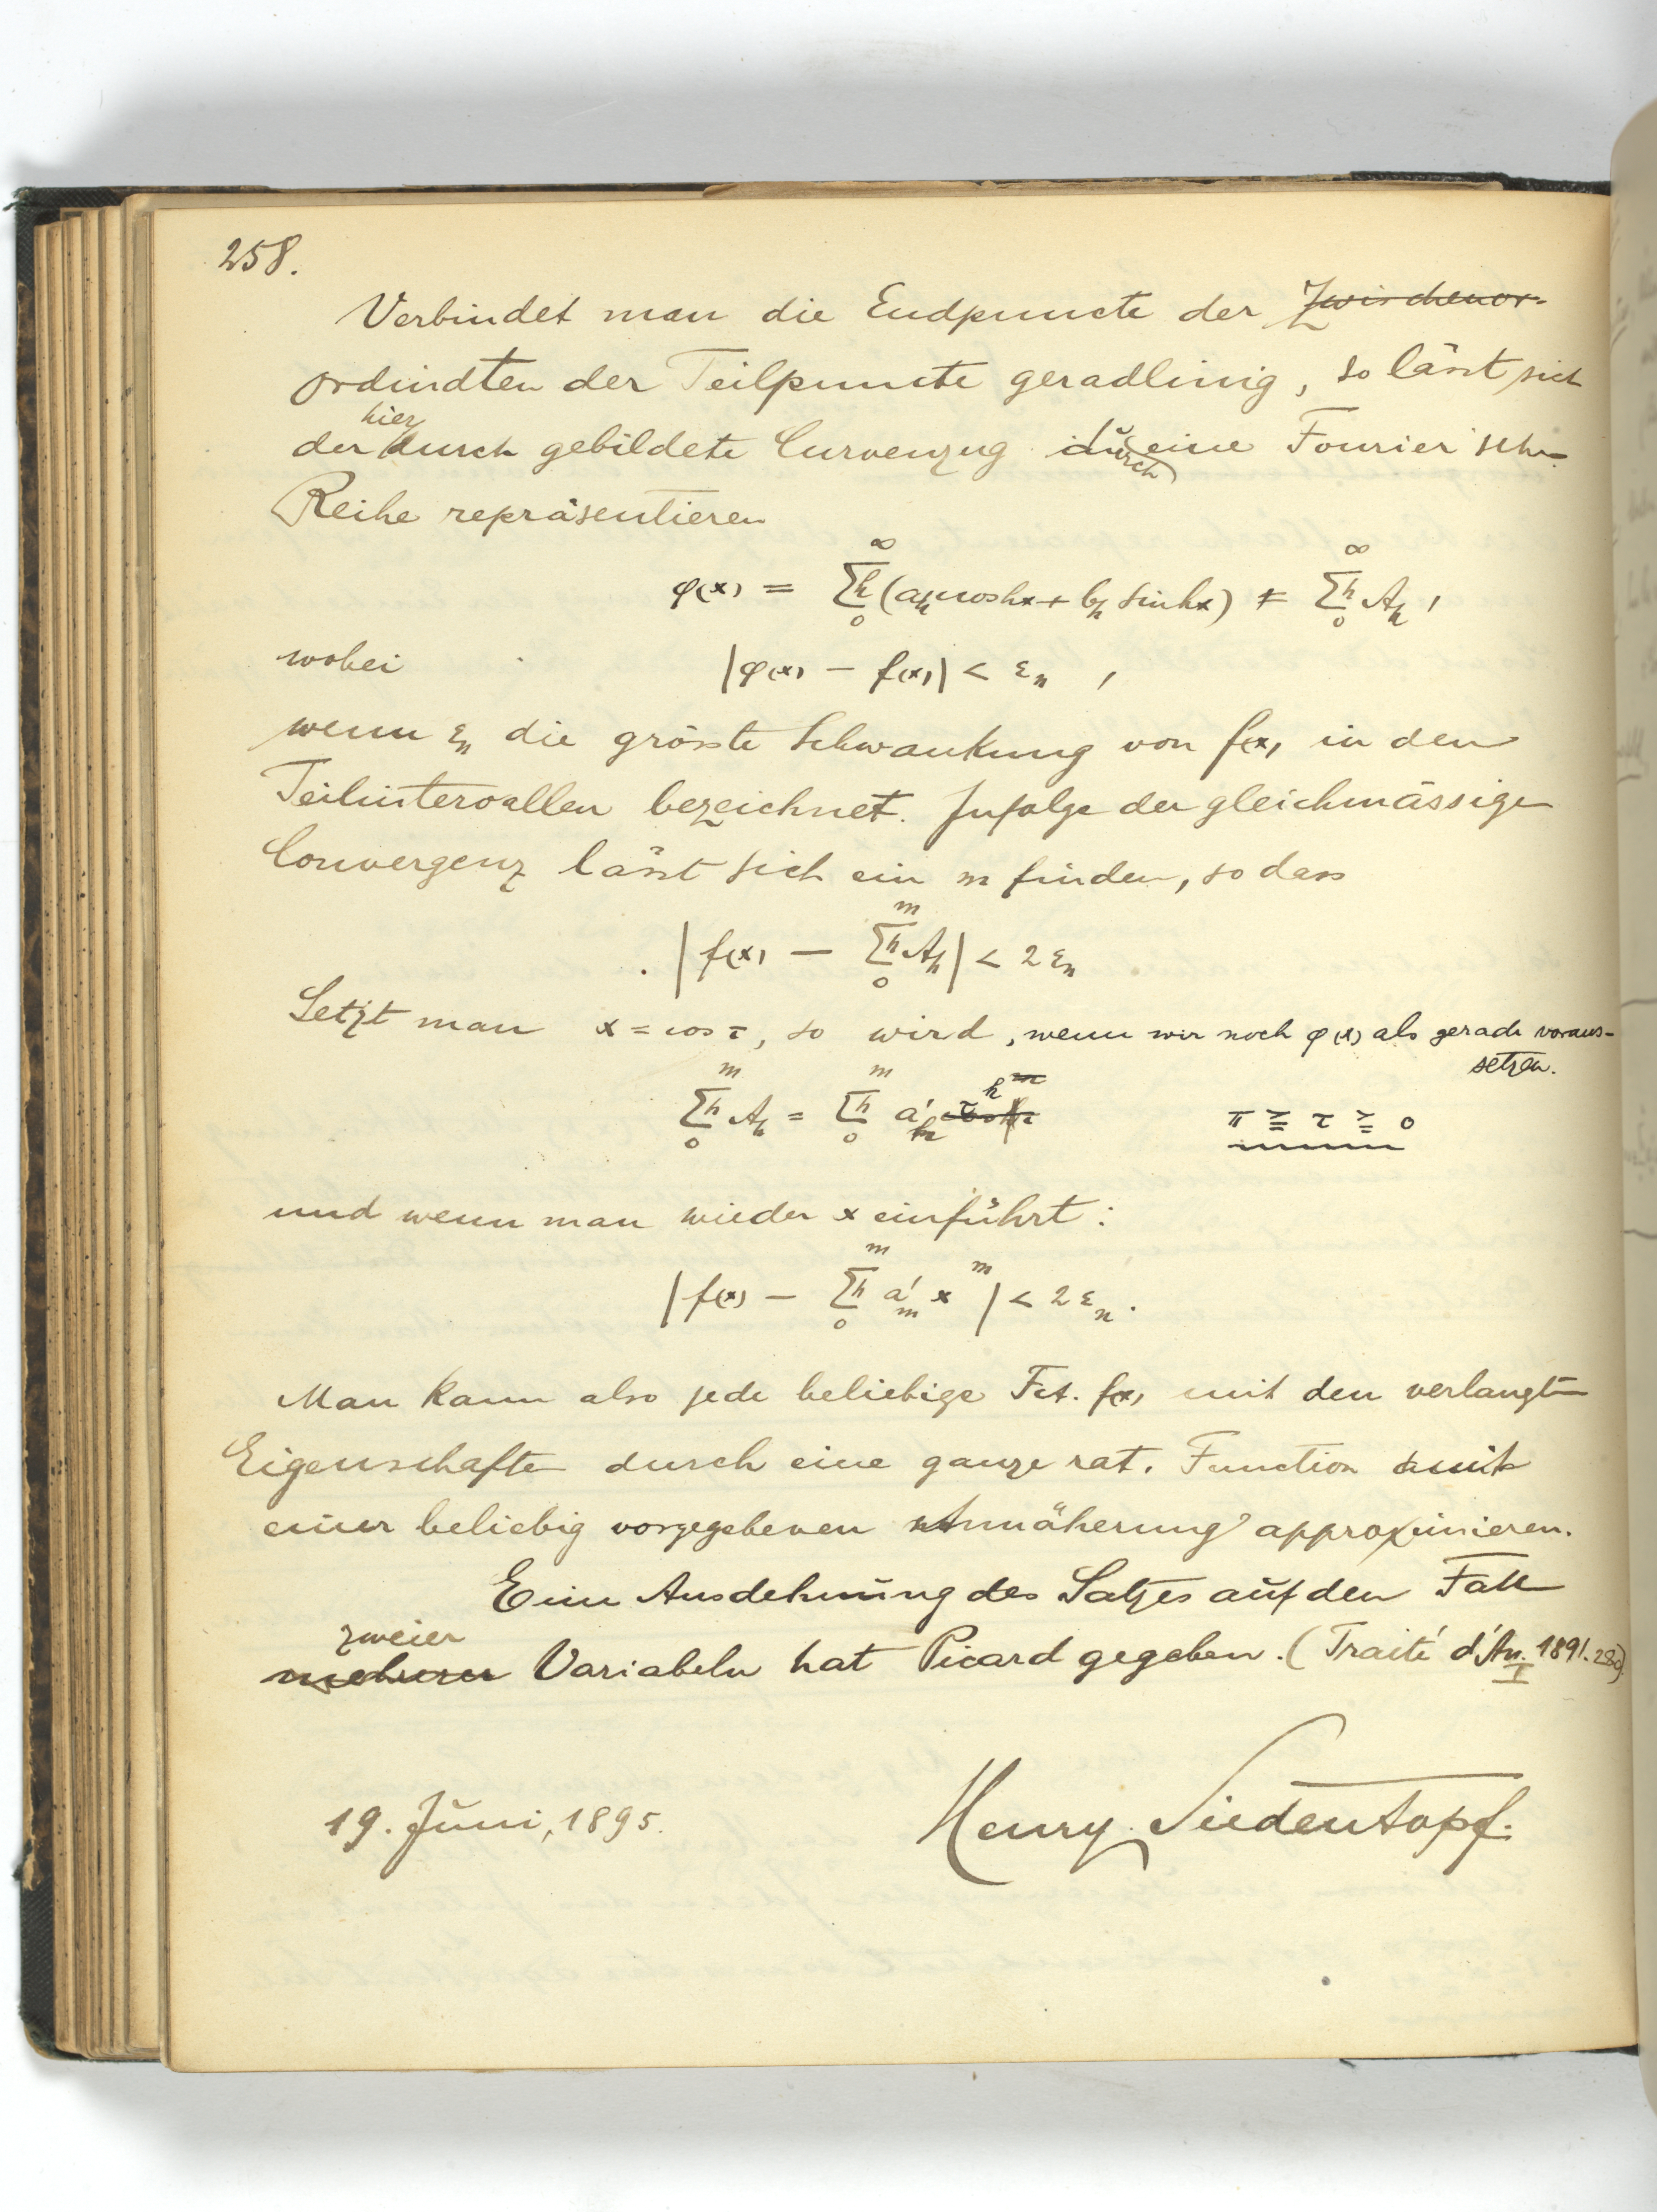 258.
Verbindet man die Endpuncte der Zwischenor-
ordindten der Teilpuncte geradlinig, so lässt sich
der hierdurch gebildete Curvenzug durch eine Fourier'sche
Reihe repräsentieren
φ(x) = ∑ʰ₀^∞ (aₕ cos hx + bₕ sin hx) = ∑ʰ₀^∞ Aₕ,
wobei |φ(x) − f(x)| < εₙ ,
wenn εₙ die grösste Schwankung von f(x) in den
Teilintervallen bezeichnet. Zufolge der gleichmässigen
Convergenz lässt sich ein m finden, so dass
|f(x) − ∑ʰ₀^m Aₕ| < 2εₙ
Setzt man x = cos τ, so wird, wenn wir noch φ(x) als gerade voraus-
setzen.
∑ʰ₀^m Aₕ = ∑ʰ₀^m a'ₕ τ^h π ≧ τ ≧ 0
und wenn man wieder x einführt:
|f(x) − ∑ʰ₀^m a'ₘ x^m| < 2εₙ.
Man kann also jede beliebige Fct. f(x) mit den verlangten
Eigenschaften durch eine ganze rat. Function mit
einer beliebig vorgegebenen Annäherung approximieren.
Eine Ausdehnung des Satzes auf den Fall
zweier
mehrerer Variabeln hat Picard gegeben. (Traité d'An. I 1891. 280).
19. Juni, 1895. Henry Siedentopf.